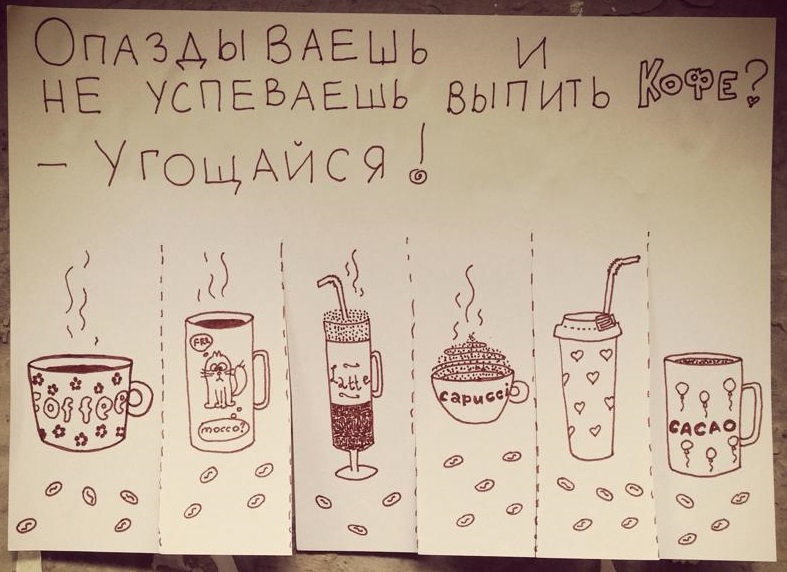 ОПАЗДЫВАЕШЬ И
НЕ УСПЕВАЕШЬ ВЫПИТЬ КОФЕ?
- УГОЩАЙСЯ!
coffee
FRR
mocco?
Latte
capucci
CACAO